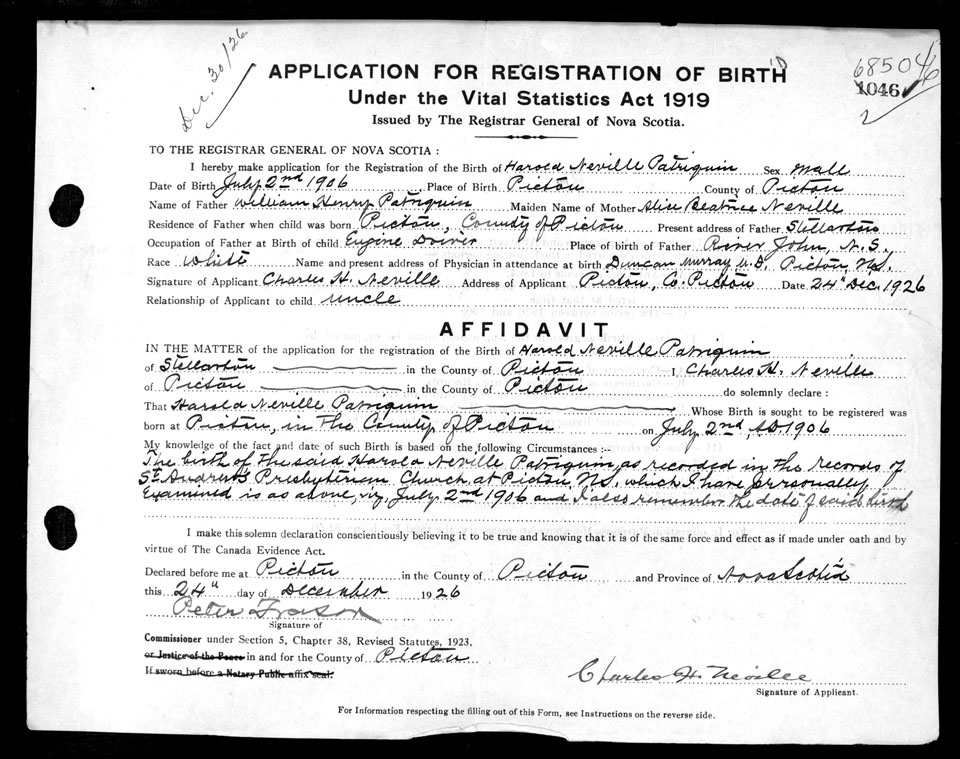 Dec. 30/26
APPLICATION FOR REGISTRATION OF BIRTH
68504
1046
2
Under the Vital Statistics Act 1919
Issued by The Registrar General of Nova Scotia.
TO THE REGISTRAR GENERAL OF NOVA SCOTIA :
I hereby make application for the Registration of the Birth of Harold Neville Patriquin Sex. Male
Date of Birth July 2nd 1906 Place of Birth Pictou County of Pictou
Name of Father William Henry Patriquin Maiden Name of Mother Alice Beatrice Neville
Residence of Father when child was born Pictou, County of Pictou Present address of Father Stellarton
Occupation of Father at Birth of child Engine Driver Place of birth of Father River John, N.S.
Race White Name and present address of Physician in attendance at birth Duncan Murray, M.D. Pictou, N.S.
Signature of Applicant Charles H. Neville Address of Applicant Pictou, Co. Pictou Date 24" Dec. 1926
Relationship of Applicant to child uncle
AFFIDAVIT
IN THE MATTER of the application for the registration of the Birth of Harold Neville Patriquin
of Stellarton in the County of Pictou I Charles H. Neville
of Pictou in the County of Pictou do solemnly declare :
That Harold Neville Patriquin Whose Birth is sought to be registered was
born at Pictou, in the County of Pictou on July 2nd, AD 1906
My knowledge of the fact and date of such Birth is based on the following Circumstances :–
The birth of the said Harold Neville Patriquin, as recorded in the records of
St Andrew's Presbyterian Church, at Pictou, N.S., which I have personally
Examined is as above, viz, July 2nd 1906 and I also remember the date of said birth
I make this solemn declaration conscientiously believing it to be true and knowing that it is of the same force and effect as if made under oath and by
virtue of The Canada Evidence Act.
Declared before me at Pictou in the County of Pictou and Province of Nova Scotia
this 24" day of December 1926
Peter
Signature of
Commissioner under Section 5, Chapter 38, Revised Statutes, 1923,
or Justice of the Peace in and for the County of Pictou
If sworn before a Notary Public affix seal.
Charles H. Neville
Signature of Applicant.
For Information respecting the filling out of this Form, see Instructions on the reverse side.